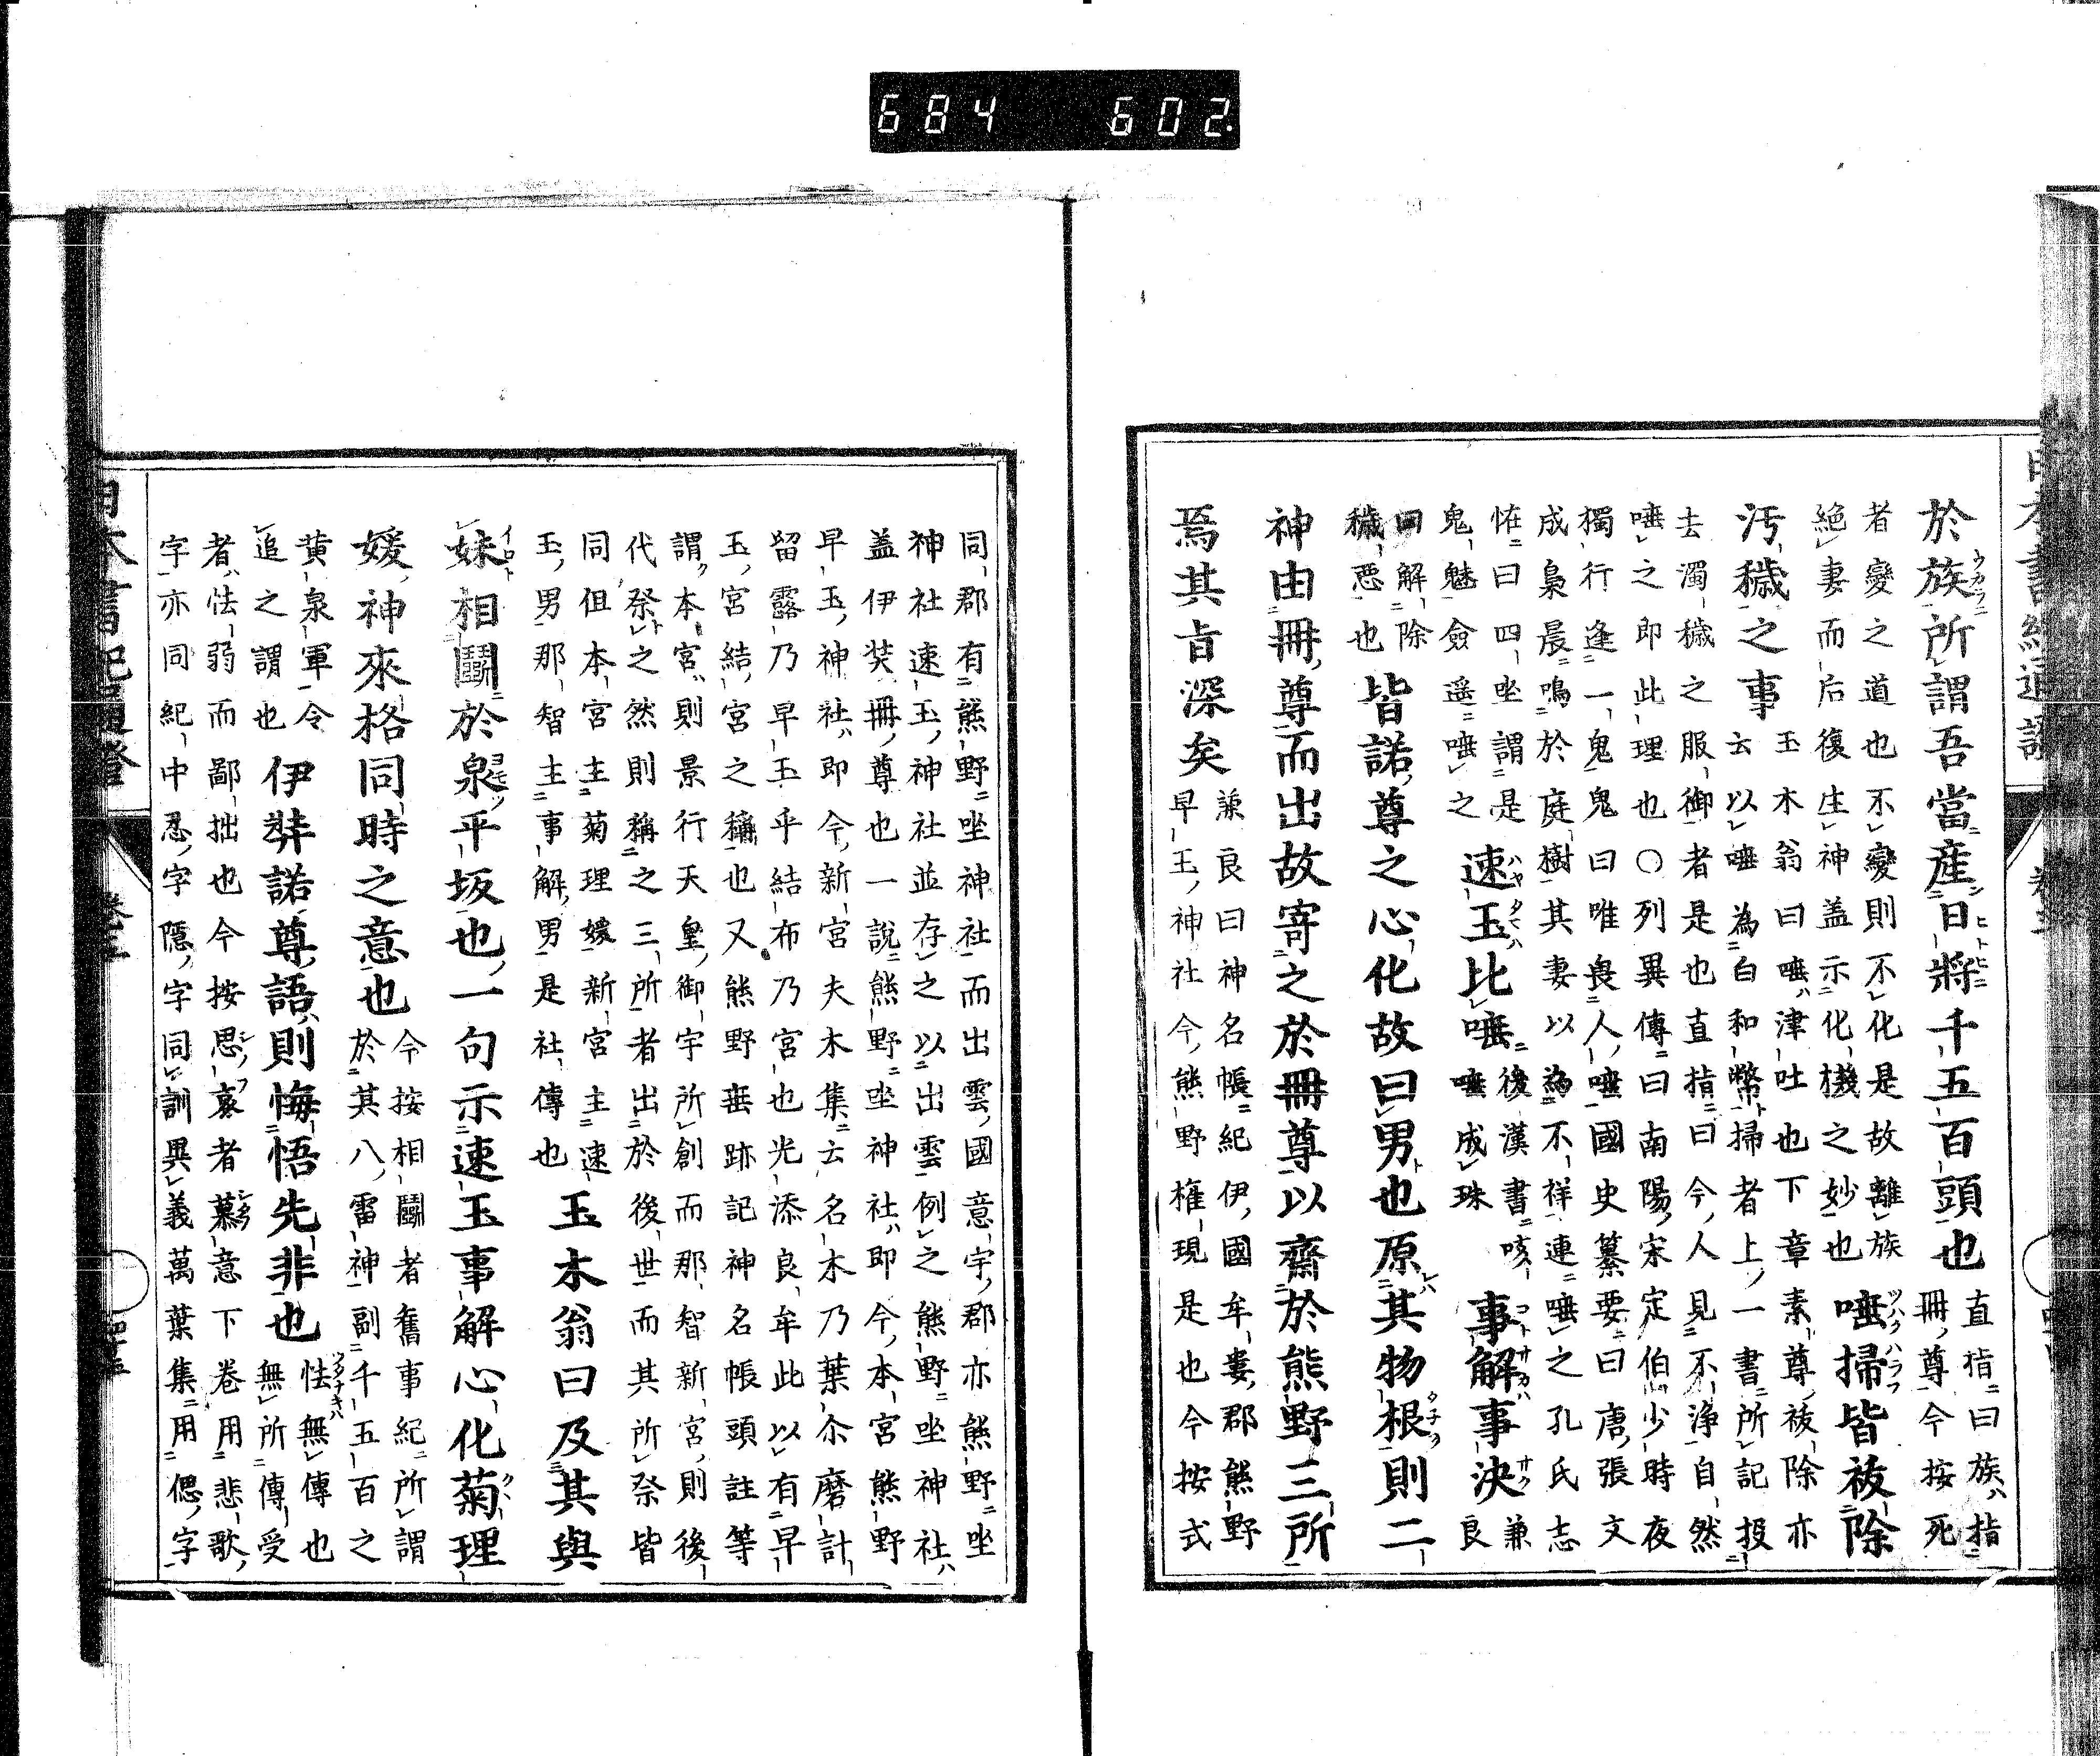 684 602
於族所謂吾當産日將千五百頭也
直指曰族指
冊尊今按死
者變之道也不變則不化是故離族
絶妻而后復生神蓋示化機之妙也
唾掃皆祓除
汚穢之事
玉木翁曰唾津吐也下章素尊祓除亦
云以唾為白和幣掃者上一書所記投
去濁穢之服御者是也直指曰今人見不淨自然
唾之即此理也○列異傳曰南陽宋定伯少時夜
獨行逢一鬼鬼曰唯畏人唾國史纂要曰唐張文
成梟晨鳴於庭樹其妻以為不祥連唾之孔氏志
恠曰四坐謂是
鬼魅僉遥唾之
速玉比唾
後漢書咳
唾成珠
事解事決
兼良
曰解除
穢惡也
皆諾尊之心化故曰男也原其物根則二
神由冊尊而出故寄之於冊尊以齋於熊野三所
焉其旨深矣
兼良曰神名帳紀伊國牟婁郡熊野
早玉神社今熊野權現是也今按式
同郡有熊野坐神社而出雲國意宇郡亦熊野坐
神社速玉神社並存之以出雲例之熊野坐神社
蓋伊奘冊尊也一說熊野坐神社即今本宮熊野
早玉神社即今新宮夫木集云名木乃葉尒磨計
留露乃早玉乎結布乃宮也光添良牟此以有早
玉宮結宮之稱也又熊野垂跡記神名帳頭註等
謂本宮則景行天皇御宇所創而那智新宮則後
代祭之然則稱之三所者出於後世而其所祭皆
同但本宮主菊理媛新宮主速
玉男那智主事解男是社傳也
玉木翁曰及其與
妹相鬭於泉平坂也一句示速玉事解心化菊理
媛神來格同時之意也
今按相鬭者舊事紀所謂
於其八雷神副千五百之
黄泉軍令
追之謂也
伊弉諾尊語則悔悟先非也
怯無傳也
無所傳受
者怯弱而鄙拙也今按思哀者慕意下卷用悲歌
字亦同紀中忍字隱字同訓異義萬葉集用偲字